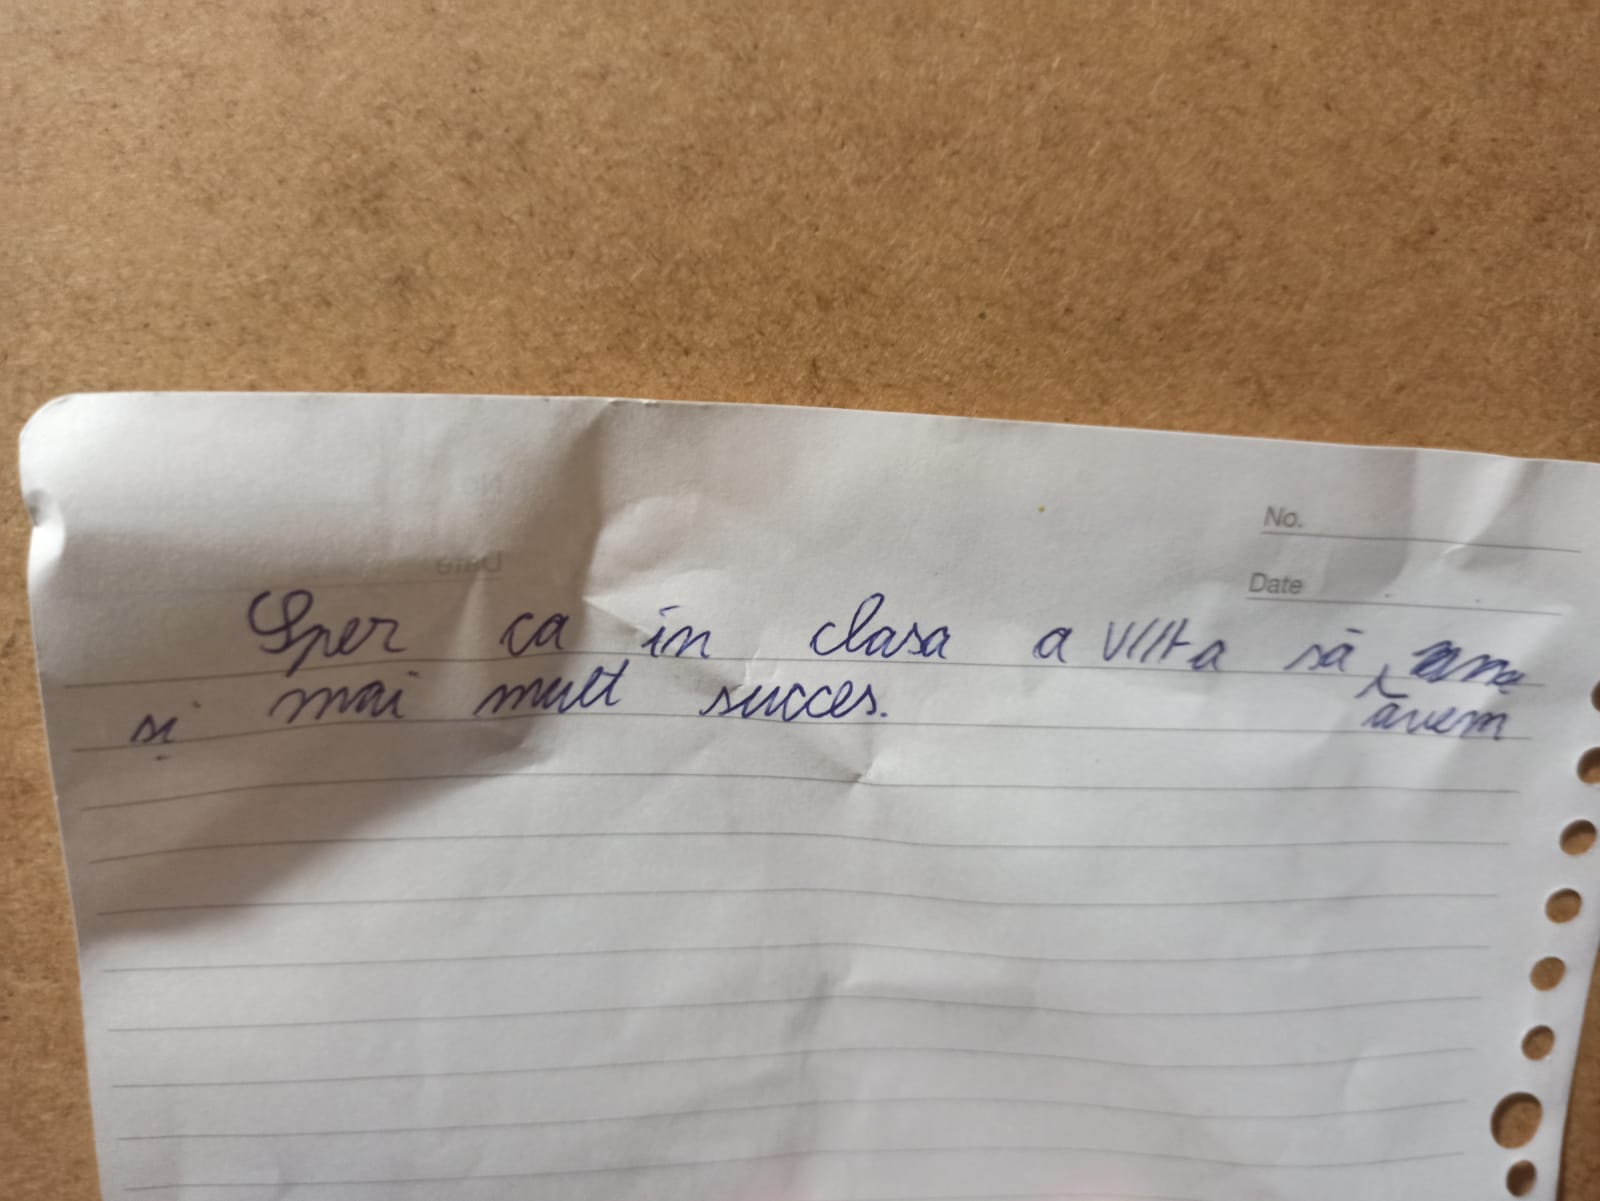 No.
Date
Sper ca in clasa a VII-a să
avem
si mai mult succes.